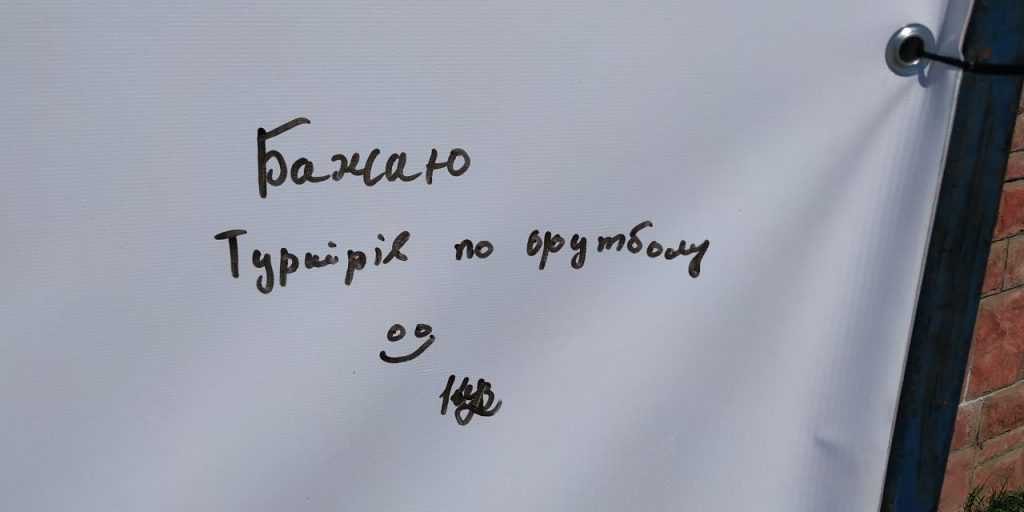 Бажаю
Турнірів по футболу